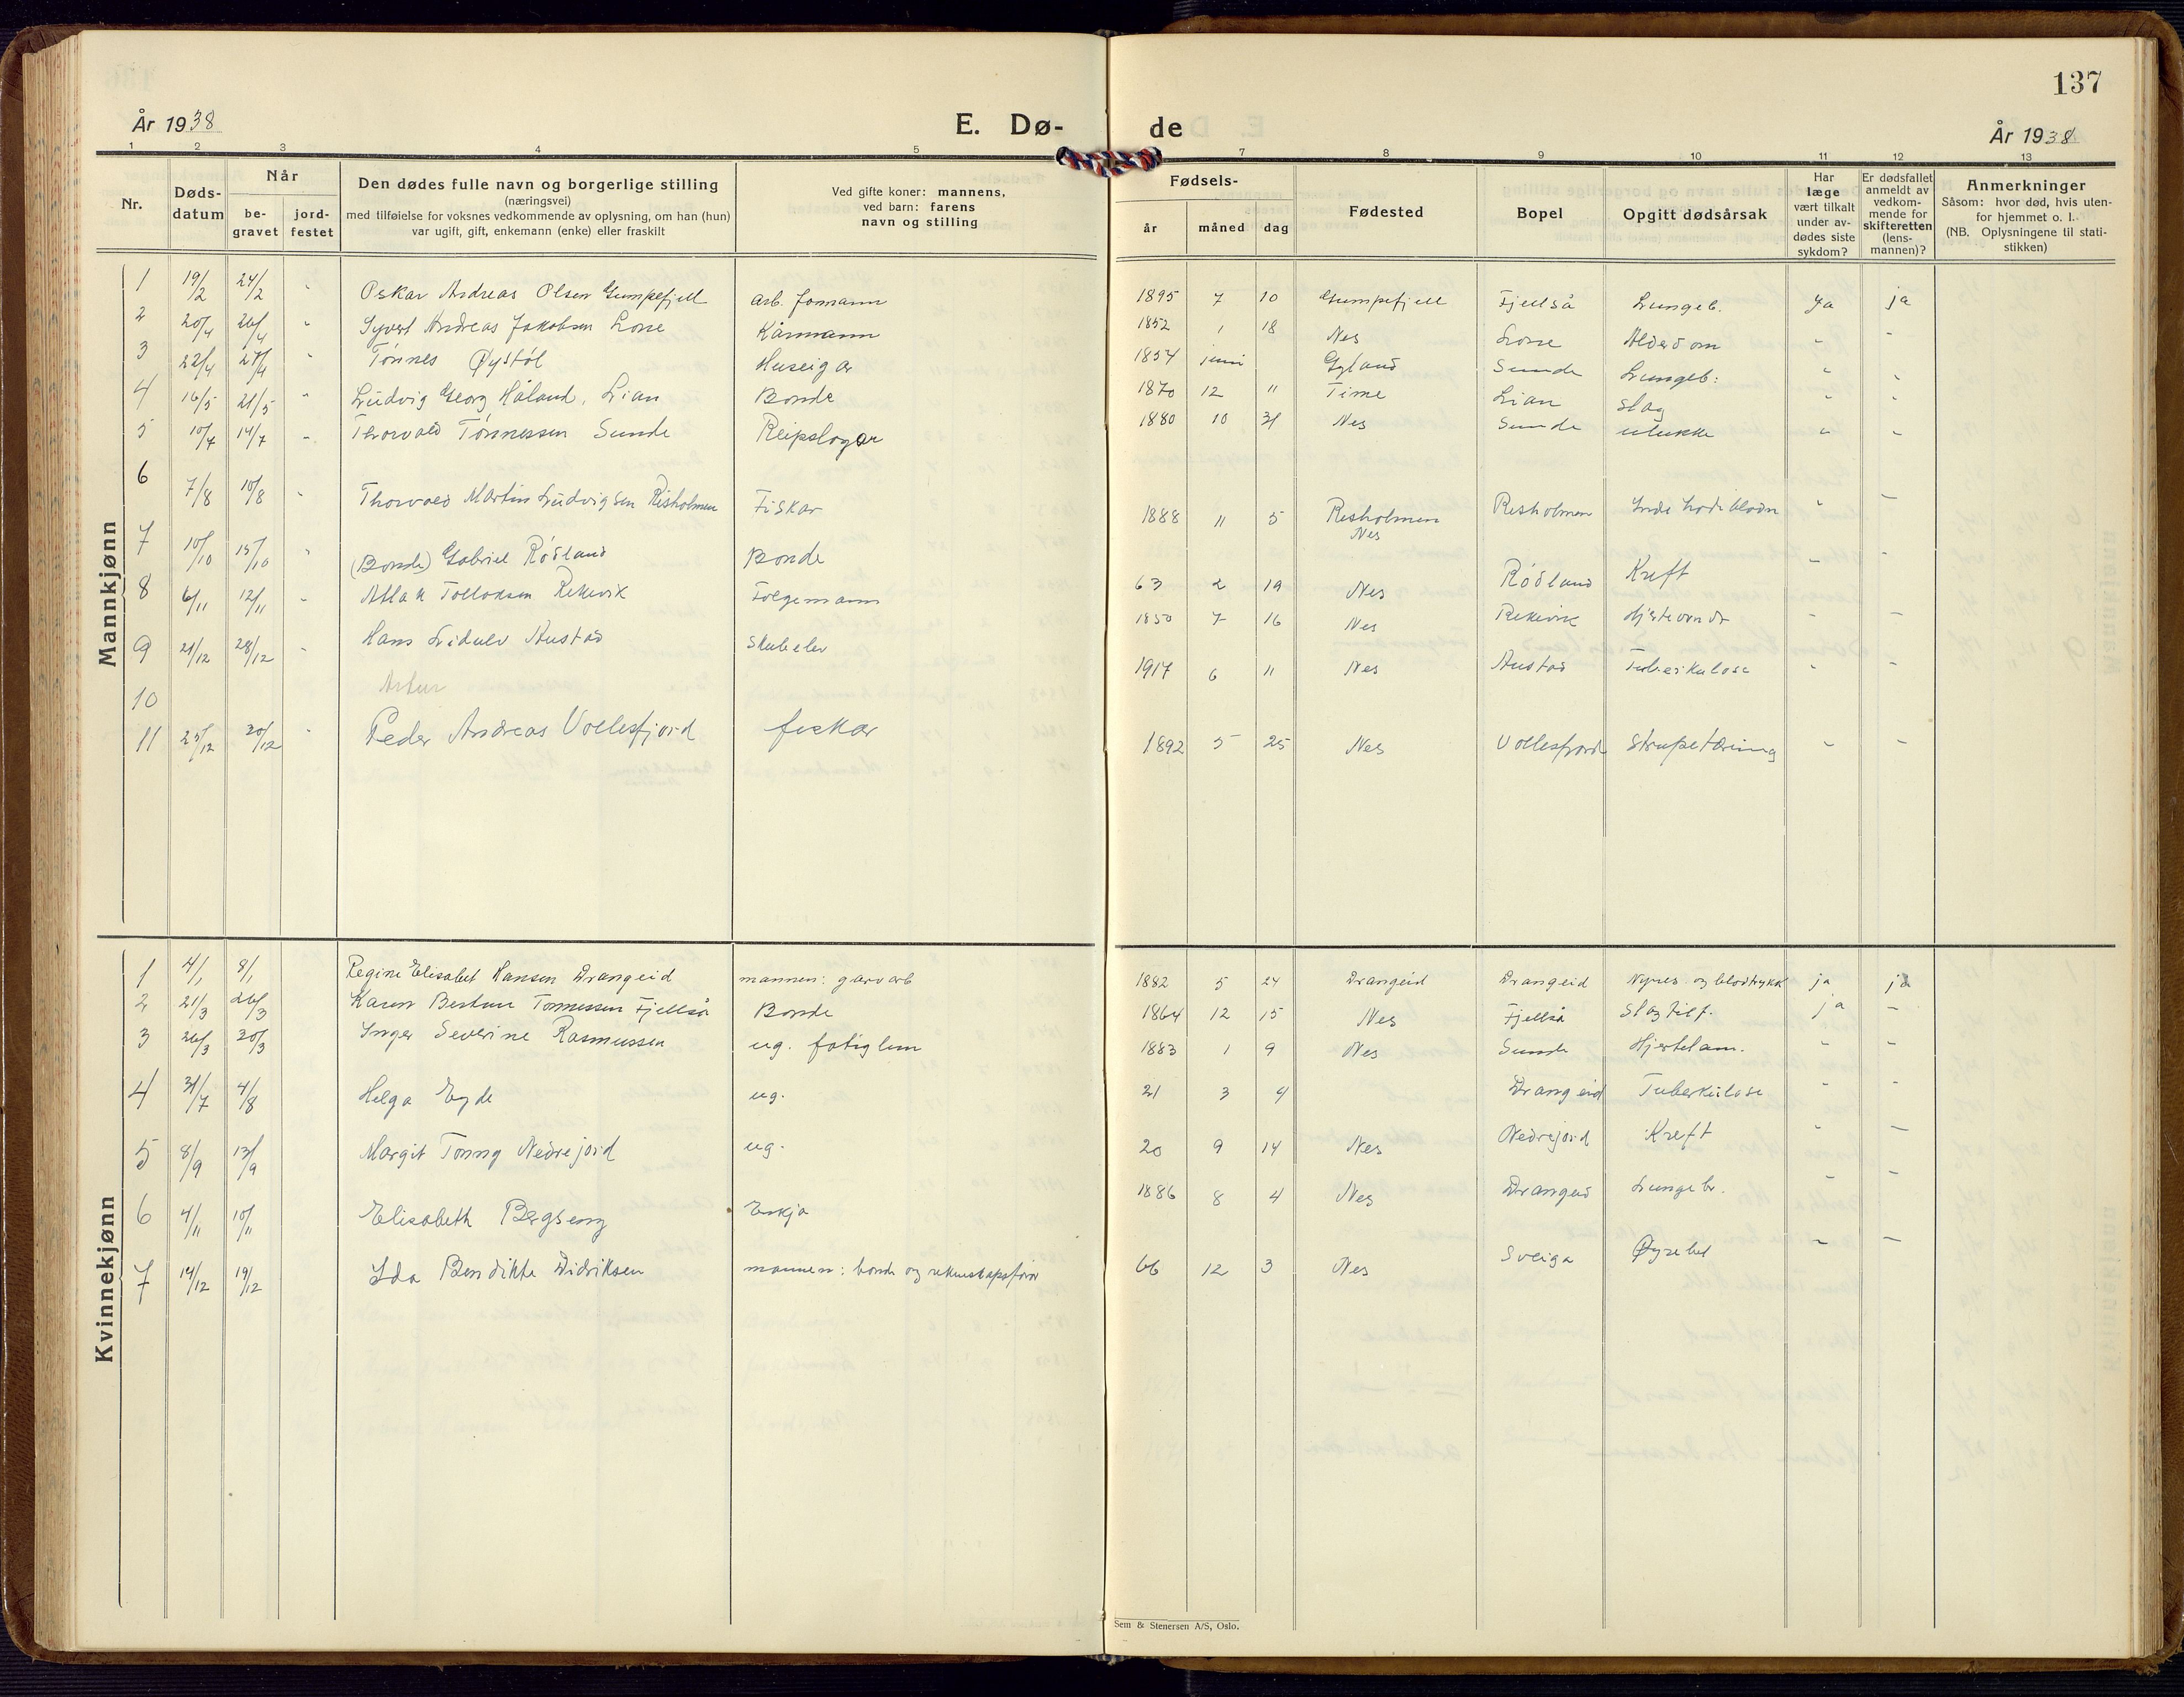 137
År 1938
E. Dø-
de
År 1938
1 2 3 4 5 7 8 9 10 11 12 13
Nr.
Døds-
datum
Når
be-
gravet
jord-
festet
Den dødes fulle navn og borgerlige stilling
(næringsvei)
med tilføielse for voksnes vedkommende av oplysning, om han (hun)
var ugift, gift, enkemann (enke) eller fraskilt
Ved gifte koner: mannens,
ved barn: farens
navn og stilling
Fødsels-
år måned dag
Fødested
Bopel
Opgitt dødsårsak
Har
læge
vært tilkalt
under av-
dødes siste
sykdom?
Er dødsfallet
anmeldt av
vedkom-
mende for
skifteretten
(lens-
mannen)?
Anmerkninger
Såsom: hvor død, hvis uten-
for hjemmet o. l.
(NB. Oplysningene til stati-
stikken)
Mannkjønn
1 19/2 24/2 " Oskar Andreas Olsen Gumpefjell arb. formann 1895 7 10 Gumpefjell Fjellså Lungeb. Ja ja
2 20/4 26/4 " Syvert Andreas Jakobsen Losse Kårmann 1852 1 18 Nes Losse Alderdom " "
3 22/4 27/4 " Tønnes Øystøl Huseigar 1854 juni Gyland Sunde Lungeb: " "
4 16/5 21/5 " Ludvig Georg Håland, Lian Bonde 1870 12 11 Time Lian slag " "
5 10/7 14/7 " Thorvald Tønnessen Sunde Reipslagar 1880 10 31 Nes Sunde ulukke " "
6 7/8 10/8 " Thorvald Martin Ludvigsen Risholmen Fiskar 1888 11 5 Risholmen Nes Risholmen " —
7 10/10 15/10 " (Bonde) Gabriel Rødland Bonde 63 2 19 Nes Rødland Kreft " "
8 6/11 12/11 " Atlak Tollaksen Rekevik Følgemann 1850 7 16 Nes Rekevik " —
9 21/12 28/12 " Hans Lidulv Austad Skuleelev 1917 6 11 Nes Austad Tuberkulose " "
Artur
10
11 25/12 30/12 " Peder Andreas Vollesfjord fiskar 1892 5 25 Nes Vollesfjord Strupetæring " "
Kvinnekjønn
1 4/1 8/1 Regine Elisabet Hansen Drangeid mannen: garvarb 1882 5 24 Drangeid Drangeid Nyres. og blodtrykk ja ja
2 21/3 26/3 Karen Tønnessen Fjellså Bonde 1864 12 15 Nes Fjellså Slagtilf. ja —
3 26/3 30/3 Inger Severine Rasmussen ug. fatiglem 1883 1 9 Nes Sunde Hjertelam. " "
4 31/7 4/8 Helga Eyde ug. 21 3 4 Drangeid Tuberkulose " "
5 8/9 13/9 Margit Tonny Nedrejord ug. 20 9 14 Nes Nedrejord Kreft " —
6 4/11 10/11 Elisabeth Bergseng Enkja 1886 8 4 Nes Drangeid Lungebr. " "
7 14/12 19/12 Ida Bendikte Didriksen mannen: bonde og rekneskapsførar 66 12 3 Nes Sveiga " —
Sem & Stenersen A/S, Oslo.